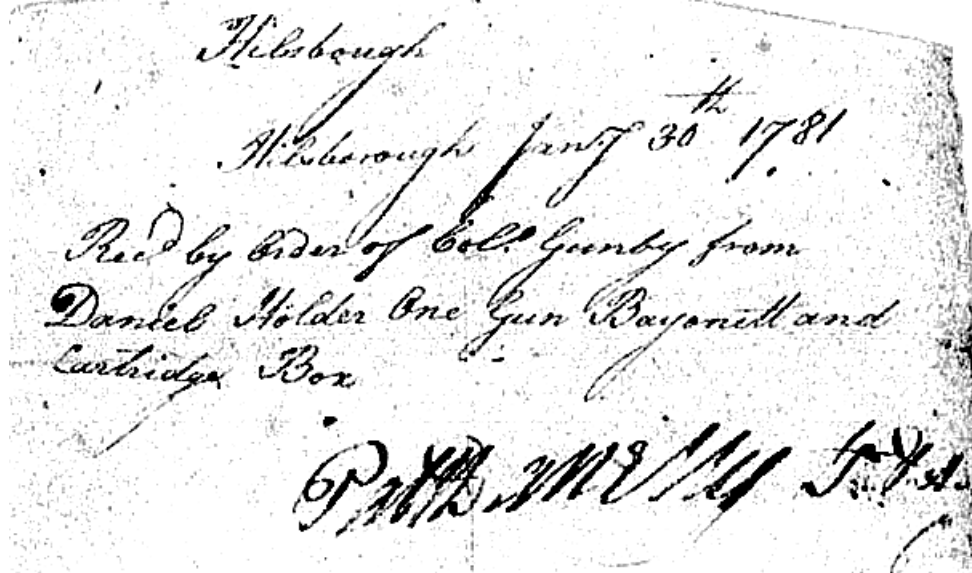 Hilsbough
Hilsborough Jany 30th 1781
Recd by Order of Coll. Gunby from
Daniel Holder One Gun Bayonett and
Cartridge Box